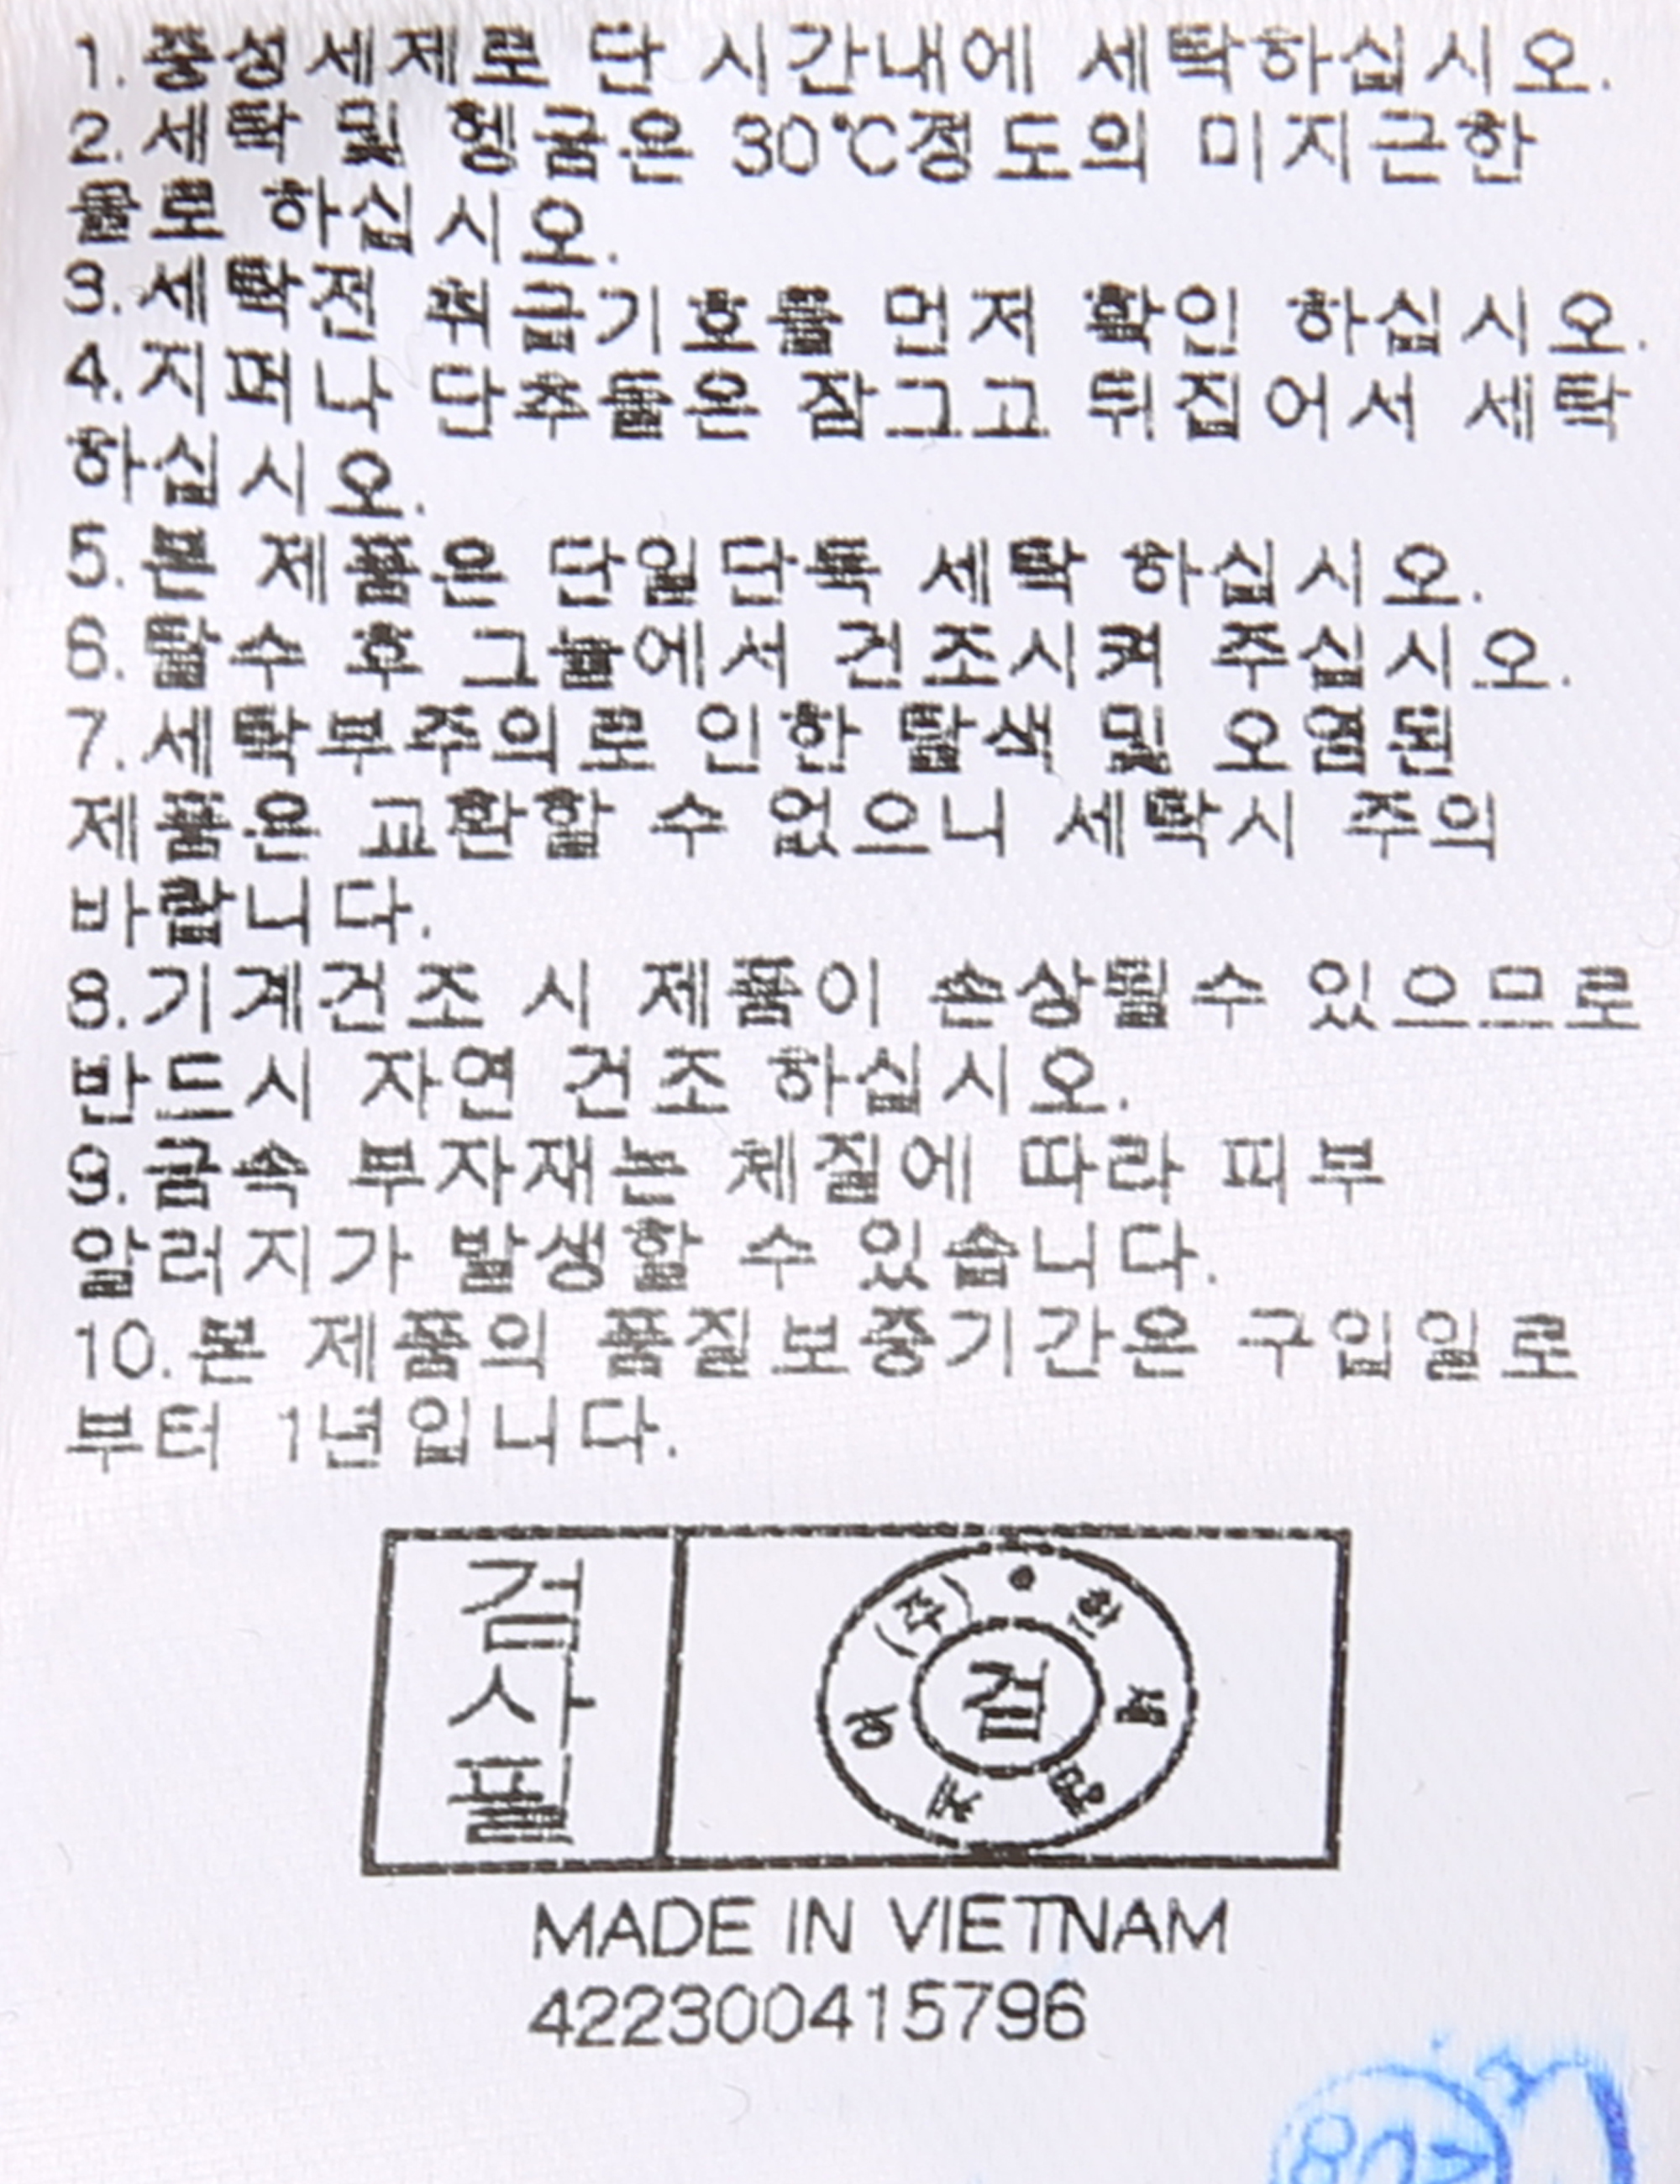 1. 중성세제로 단 시간내에 세탁하십시오.
2. 세탁 및 헹굼은 30℃정도의 미지근한
물로 하십시오.
3. 세탁전 취급기호를 먼저 확인 하십시오.
4. 지퍼나 단추들은 잠그고 뒤집어서 세탁
하십시오.
5. 본 제품은 단일단독 세탁 하십시오.
6. 탈수 후 그늘에서 건조시켜 주십시오.
7. 세탁부주의로 인한 탈색 및 오염된
제품은 교환할 수 없으니 세탁시 주의
바랍니다.
8.기계건조 시 제품이 손상될수 있으므로
반드시 자연 건조 하십시오.
9.금속 부자재는 체질에 따라 피부
알러지가 발생할 수 있습니다.
10.본 제품의 품질보증기간은 구입일로
부터 1년입니다.
검사필
(주)
한세엠
검
MADE IN VIETNAM
422300415796